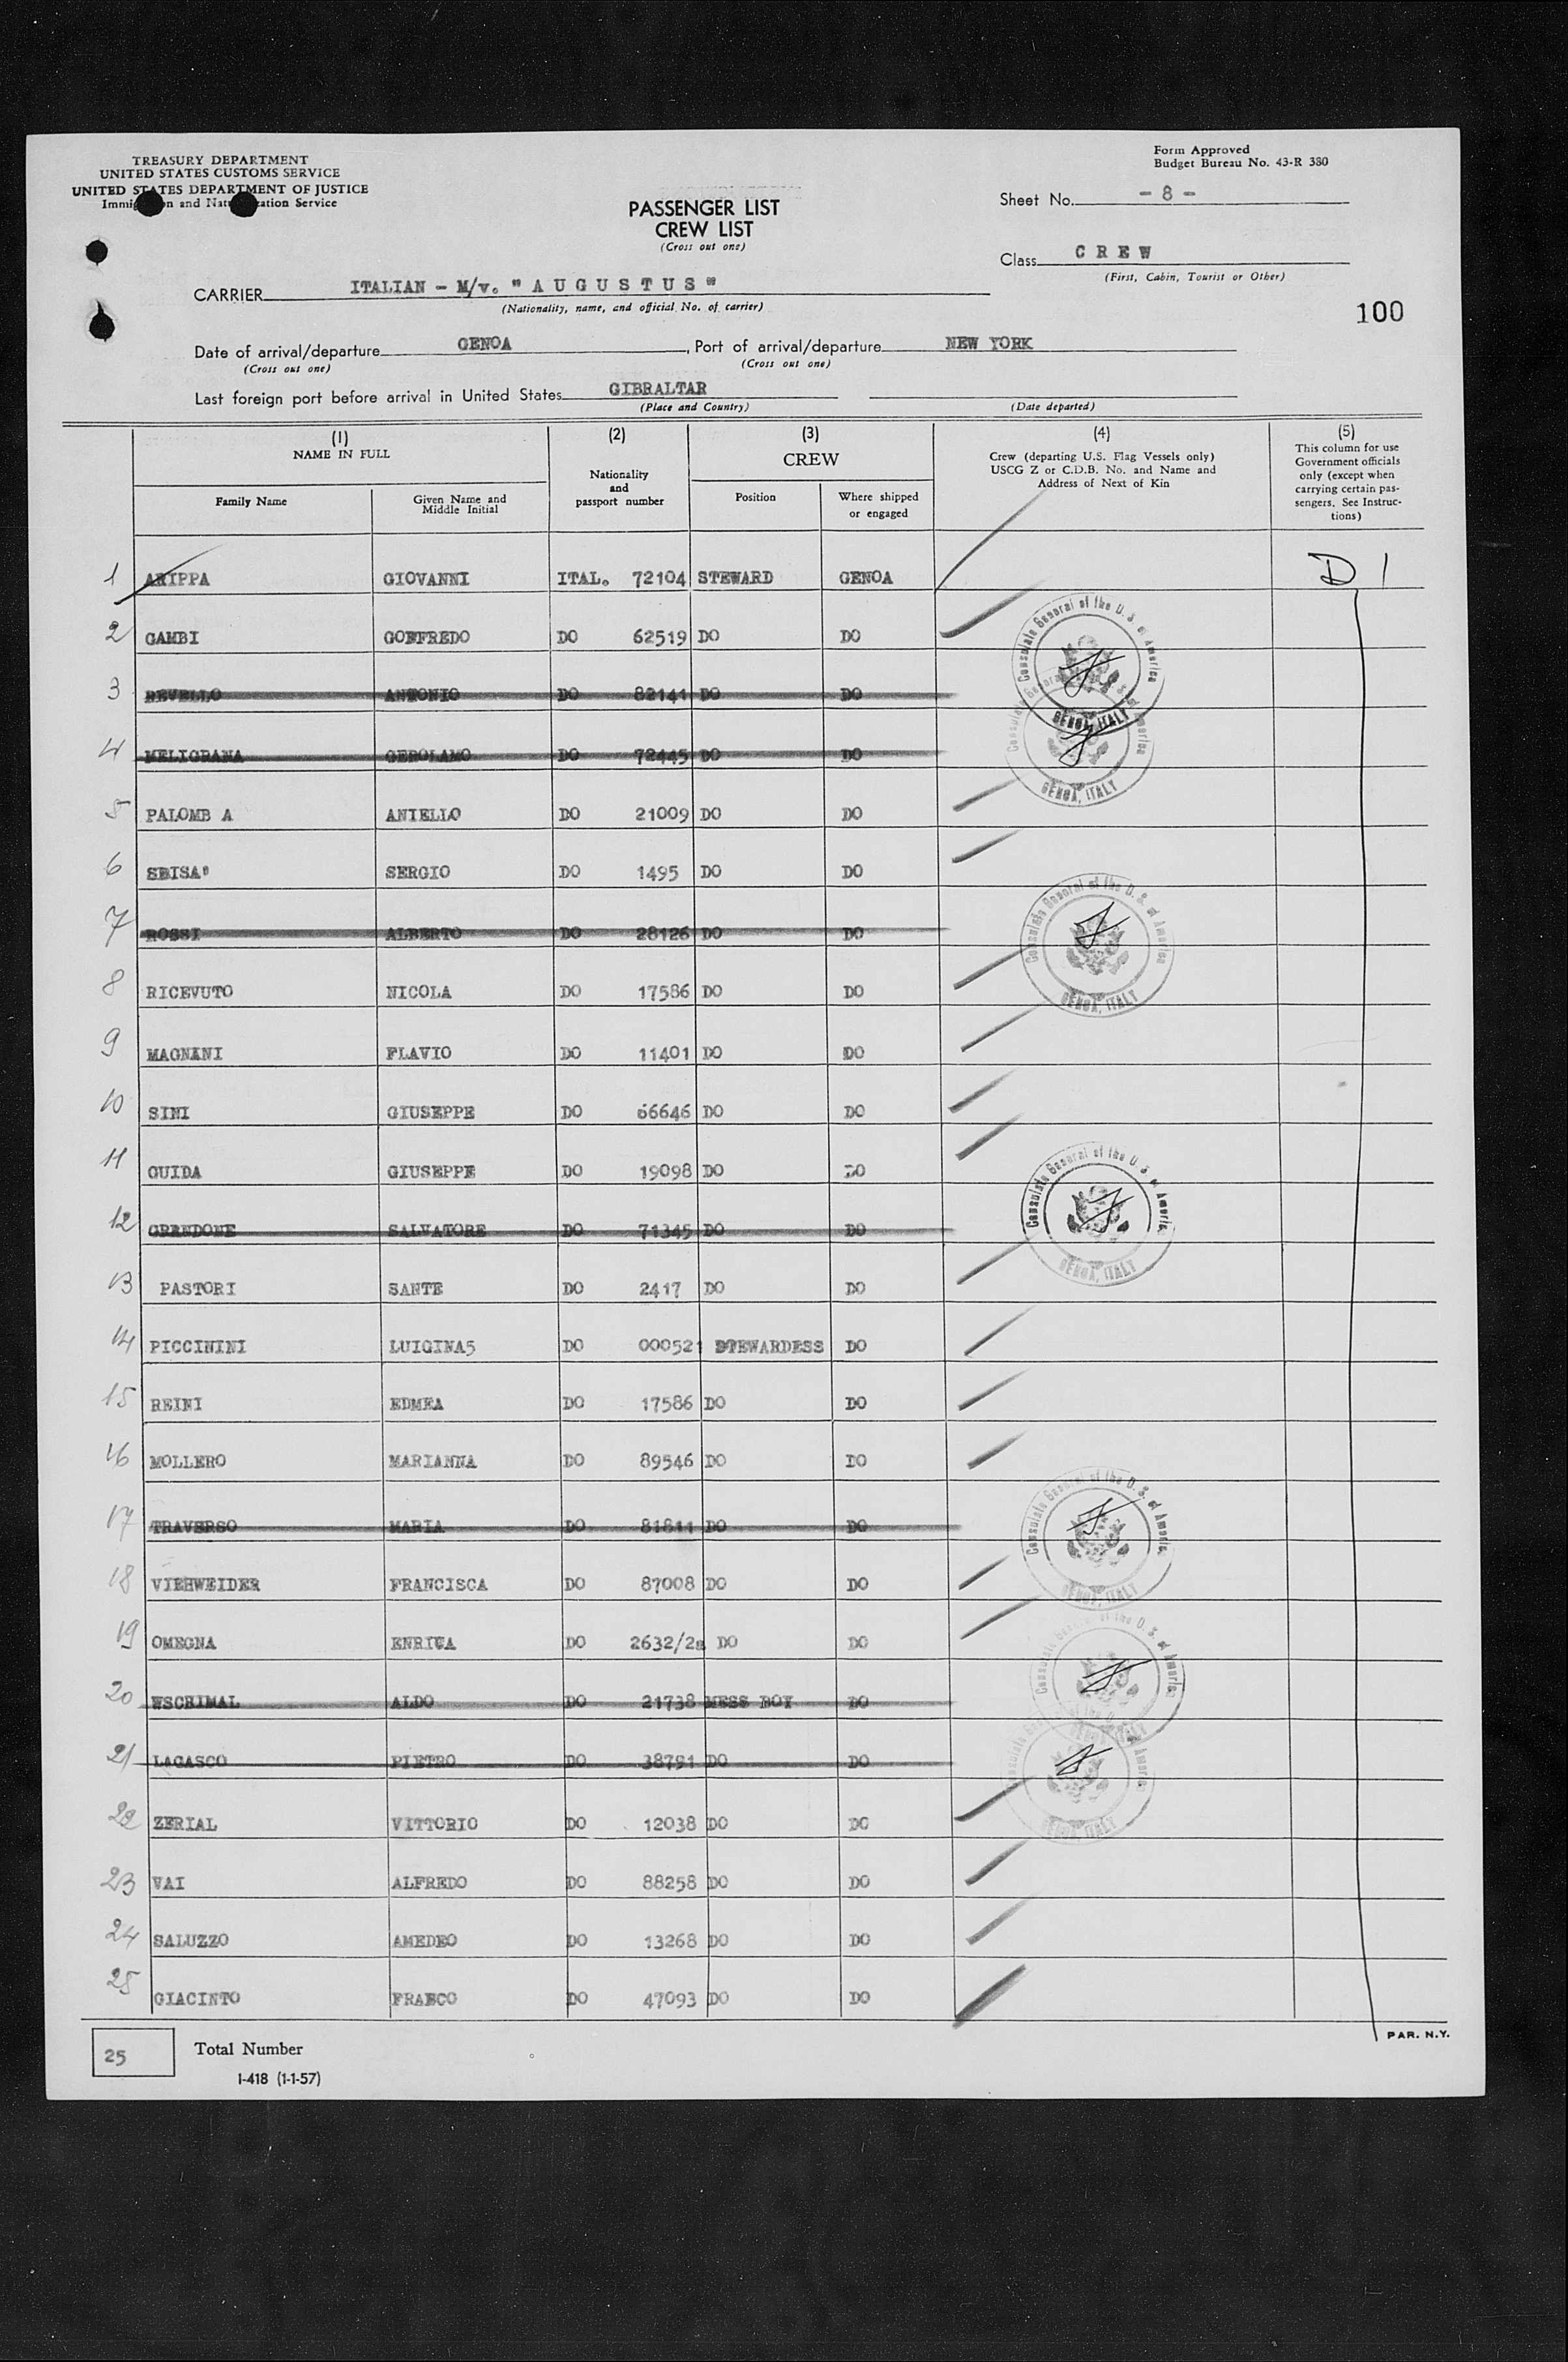 TREASURY DEPARTMENT
UNITED STATES CUSTOMS SERVICE
UNITED STATES DEPARTMENT OF JUSTICE
Immigration and Naturalization Service
Form Approved
Budget Bureau No. 43-R 380
PASSENGER LIST
CREW LIST
(Cross out one)
Sheet No. - 8 -
Class C R E W
(First, Cabin, Tourist or Other)
CARRIER ITALIAN - M/v. "A U G U S T U S"
(Nationality, name, and official No. of carrier)
100
Date of arrival/departure GENOA , Port of arrival/departure NEW YORK
(Cross out one) (Cross out one)
Last foreign port before arrival in United States GIBRALTAR
(Place and Country) (Date departed)
(1) (2) (3) (4) (5)
NAME IN FULL
Family Name
Given Name and Middle Initial
Nationality and passport number
CREW
Position
Where shipped or engaged
Crew (departing U.S. Flag Vessels only)
USCG Z or C.D.B. No. and Name and
Address of Next of Kin
This column for use
Government officials
only (except when
carrying certain pas-
sengers. See Instruc-
tions)
1 ARIPPA GIOVANNI ITAL. 72104 STEWARD GENOA D 1
2 GAMBI GOFFREDO DO 62519 DO DO
3 REVELLO ANTONIO DO 82141 DO DO
4 MELIGRANA GEROLAMO DO 72445 DO DO
5 PALOMB A ANIELLO DO 21009 DO DO
6 SBISA' SERGIO DO 1495 DO DO
7 ROSSI ALBERTO DO 28126 DO DO
8 RICEVUTO NICOLA DO 17586 DO DO
9 MAGNANI FLAVIO DO 11401 DO DO
10 SINI GIUSEPPE DO 66646 DO DO
11 GUIDA GIUSEPPE DO 19098 DO DO
12 SALVATORE DO 71345 DO DO
13 PASTORI SANTE DO 2417 DO DO
14 PICCININI LUIGINA5 DO 000521 STEWARDESS DO
15 REINI EDMEA DO 17586 DO DO
16 MOLLERO MARIANNA DO 89546 DO DO
17 TRAVERSO MARIA DO 81811 DO DO
18 VIEHWEIDER FRANCISCA DO 87008 DO DO
19 OMEGNA ENRICA DO 2632/2a DO DO
20 ESCRIMAL ALDO DO 21738 MESS BOY DO
21 LAGASCO PIETRO DO 38791 DO DO
22 ZERIAL VITTORIO DO 12038 DO DO
23 VAI ALFREDO DO 88258 DO DO
24 SALUZZO AMEDEO DO 13268 DO DO
25 GIACINTO FRANCO DO 47093 DO DO
Consulate General of the U. S. of America
GENOA, ITALY
Consulate General of the U. S. of America
GENOA, ITALY
Consulate General of the U. S. of America
GENOA, ITALY
Consulate General of the U. S. of America
GENOA, ITALY
Consulate General of the U. S. of America
GENOA, ITALY
Consulate General of the U. S. of America
GENOA, ITALY
Consulate General of the U. S. of America
GENOA, ITALY
PAR. N.Y.
25 Total Number
I-418 (1-1-57)